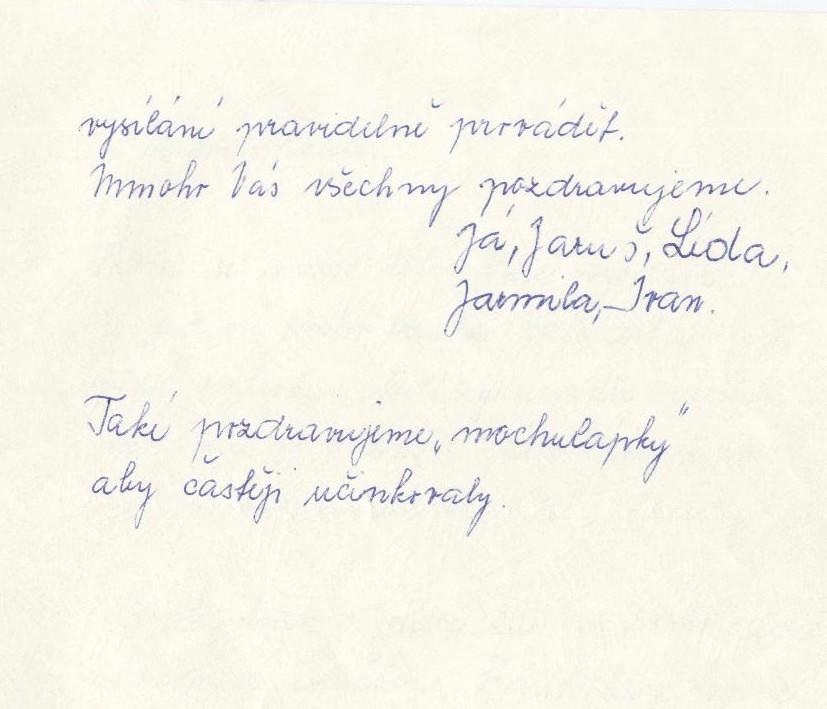 vysílání pravidelně provádět.
Mnoho Vás všechny pozdravujeme.
Já, Jaruš, Lída,
Jarmila, Ivan.
Také pozdravujeme „mochulapky"
aby častěji učinkovaly.